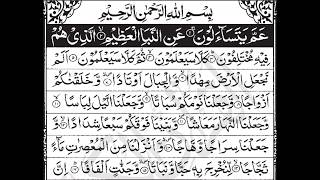 بِسْمِ اللّٰهِ الرَّحْمٰنِ الرَّحِيْمِ
عَمَّ يَتَسَآءَلُوْنَ ۝ عَنِ النَّبَاِ الْعَظِيْمِ ۝ الَّذِيْ هُمْ
فِيْهِ مُخْتَلِفُوْنَ ۝ كَلَّا سَيَعْلَمُوْنَ ۝ ثُمَّ كَلَّا سَيَعْلَمُوْنَ ۝ اَلَمْ
نَجْعَلِ الْاَرْضَ مِهٰدًا ۝ وَّالْجِبَالَ اَوْتَادًا ۝ وَّخَلَقْنٰكُمْ
اَزْوَاجًا ۝ وَّجَعَلْنَا نَوْمَكُمْ سُبَاتًا ۝ وَّجَعَلْنَا الَّيْلَ لِبَاسًا ۝
وَّجَعَلْنَا النَّهَارَ مَعَاشًا ۝ وَّبَنَيْنَا فَوْقَكُمْ سَبْعًا شِدَادًا ۝ وَّ
جَعَلْنَا سِرَاجًا وَّهَّاجًا ۝ وَّاَنْزَلْنَا مِنَ الْمُعْصِرٰتِ مَآءً
ثَجَّاجًا ۝ لِّنُخْرِجَ بِهٖ حَبًّا وَّنَبَاتًا ۝ وَّجَنّٰتٍ اَلْفَافًا ۝ اِنَّ